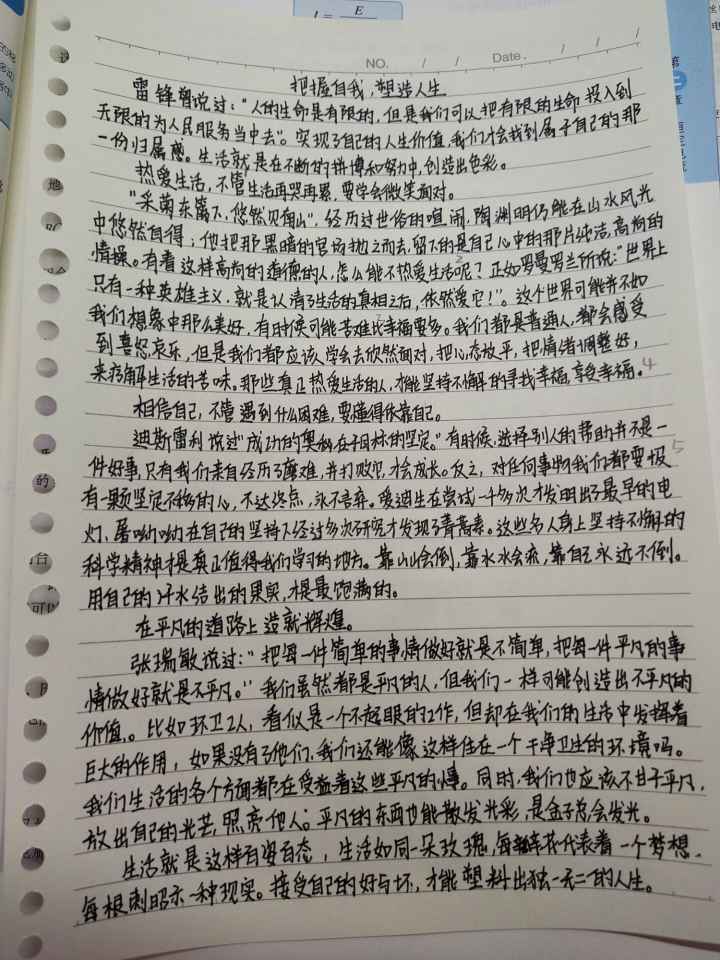 I = E
NO.
Date.
把握自我,塑造人生
雷锋曾说过:“人的生命是有限的,但是我们可以把有限的生命投入到
无限的为人民服务当中去”。实现了自己的人生价值,我们才会找到属于自己的那
一份归属感。生活就是在不断的拼搏和努力中,创造出色彩。
热爱生活,不管生活再哭再累,要学会微笑面对。
“采菊东篱下,悠然见南山”,经历过世俗的喧闹,陶渊明仍能在山水风光
中悠然自得;他把那黑暗的官场抛之而去,留下的是自己心中的那片纯洁,高尚的
情操。有着这样高尚的道德的人,怎么能不热爱生活呢?正如罗曼罗兰所说:“世界上
只有一种英雄主义,就是认清了生活的真相之后,依然爱它!”。这个世界可能并不如
我们想象中那么美好,有时候可能苦难比幸福要多。我们都是普通人,都会感受
到喜怒哀乐,但是我们都应该学会去欣然面对,把心态放平,把情绪调整好,
来疏解生活的苦味。那些真正热爱生活的人,才能坚持不懈的寻找幸福,享受幸福。4
相信自己,不管遇到什么困难,要懂得依靠自己。
迪斯雷利说过“成功的奥秘在于目标的坚定。”有时候,选择别人的帮助并不是一
件好事,只有我们亲自经历了磨难,并打败它,才会成长。反之,对任何事物我们都要极 5
有一颗坚定不移的心,不达终点,永不言弃。爱迪生在尝试一千多次才发明出了最早的电
灯,屠呦呦在自己的坚持下经过多次研究才发现了青蒿素。这些名人身上坚持不懈的
科学精神才是真正值得我们学习的地方。靠山山会倒,靠水水会流,靠自己永远不倒。
用自己的汗水结出的果实,才是最饱满的。
在平凡的道路上造就辉煌。
张瑞敏说过:“把每一件简单的事情做好就是不简单,把每一件平凡的事
情做好就是不平凡。”我们虽然都是平凡的人,但我们一样可能创造出不平凡的
价值。比如环卫工人,看似是一个不起眼的工作,但却在我们的生活中发挥着
巨大的作用,如果没有了他们,我们还能像这样住在一个干净卫生的环境吗。
我们生活的各个方面都在受益着这些平凡的事。同时,我们也应该不甘于平凡,
放出自己的光芒,照亮他人。平凡的东西也能散发光彩,是金子总会发光。
生活就是这样有姿百态,生活如同一朵玫瑰,每瓣花代表着一个梦想,
每根刺昭示一种现实。接受自己的好与坏,才能塑料出独一无二的人生。